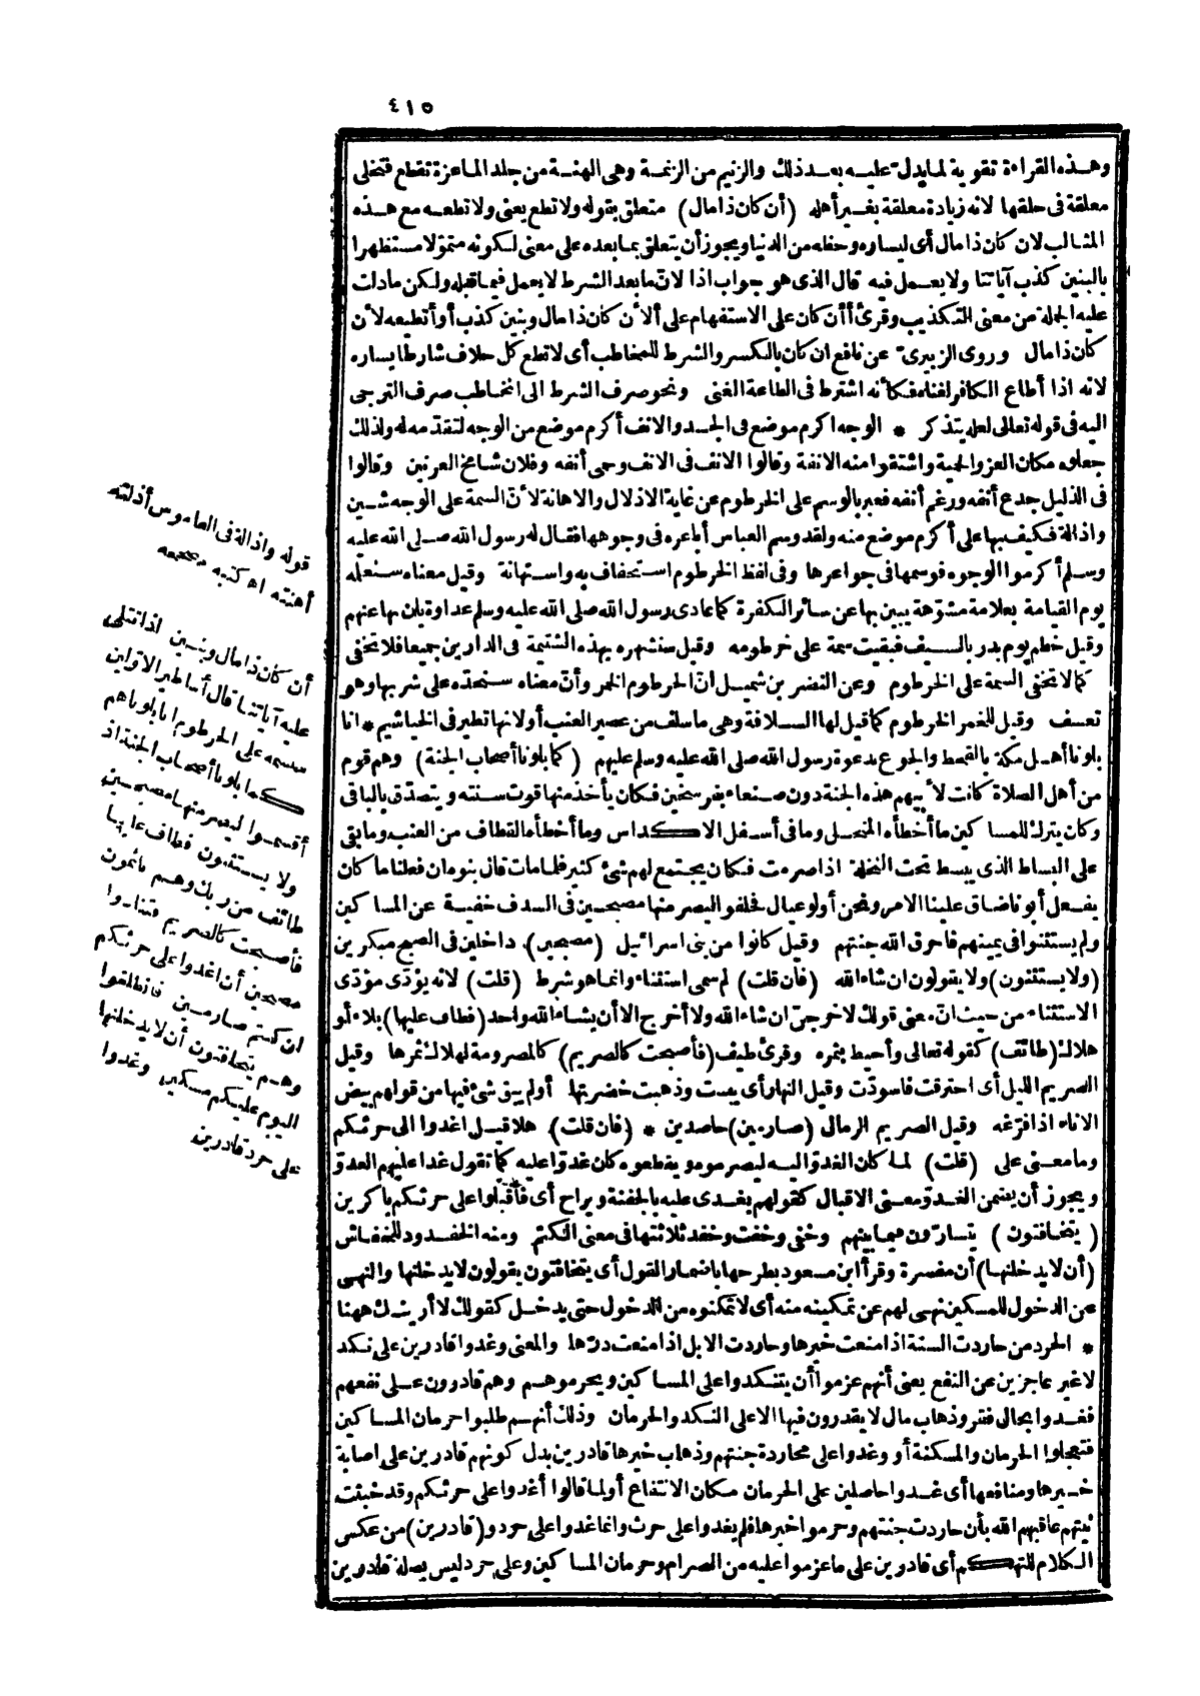 ٤١٥
وهذه القراءة تقوية لما يدل عليه بعد ذلك والزنيم من الزنمة وهى الهنة من جلد الماعزة تقطع فتخلى
معلقة فى حلقها لانه زيادة معلقة بغير أهله (أن كان ذا مال) متعلق بقوله ولا تطع يعنى ولا تطعه مع هذه
المثالب لان كان ذا مال أى ليساره وحظه من الدنيا ويجوز أن يتعلق بما بعده على معنى لكونه متمولا مستظهرا
بالبنين كذب آياتنا ولا يعمل فيه قال الذى هو جواب اذا لانّ ما بعد الشرط لا يعمل فيما قبله ولكن ما دلت
عليه الجملة من معنى التكذيب وقرئ أأن كان على الاستفهام على ألأن كان ذا مال وبنين كذب أو أتطيعه لأن
كان ذا مال وروى الزبيرىّ عن نافع ان كان بالكسر والشرط للمخاطب أى لا تطع كل حلاف شارطا يساره
لانه اذا أطاع الكافر لغناه فكأنه اشترط فى الطاعة الغنى ونحو صرف الشرط الى المخاطب صرف الترجى
اليه فى قوله تعالى لعله يتذكر * الوجه اكرم موضع فى الجسد والانف أكرم موضع من الوجه لتقدّمه له ولذلك
جعلوه مكان العز والحمية واشتقوا منه الانفة وقالوا الانف فى الانف وحمى أنفه وفلان شامخ العرنين وقالوا
فى الذليل جدع أنفه ورغم أنفه فعبر بالوسم على الخرطوم عن غاية الاذلال والاهانة لأنّ السمة على الوجه شين
واذالة فكيف بها على أكرم موضع منه ولقد وسم العباس أباعره فى وجوهها فقال له رسول الله صلى الله عليه
وسلم أكرموا الوجوه فوسمها فى جواعرها وفى لفظ الخرطوم استخفاف به واستهانة وقيل معناه سنعلّه
يوم القيامة بعلامة مشوّهة يبين بها عن سائر الكفرة كما عادى رسول الله صلى الله عليه وسلم عداوة بان بها عنهم
وقيل خطم يوم بدر بالسيف فبقيت سمة على خرطومه وقيل سنشهره بهذه الشتيمة فى الدارين جميعا فلا تخفى
كما لا تخفى السمة على الخرطوم وعن النضر بن شميل انّ الخرطوم الخمر وأنّ معناه سنحدّه على شربها وهو
تعسف وقيل للخمر الخرطوم كما قيل لها السلافة وهى ما سلف من عصير العنب أو لانها تطير فى الخياشيم * انا
بلونا أهل مكة بالقحط والجوع بدعوة رسول الله صلى الله عليه وسلم عليهم (كما بلونا أصحاب الجنة) وهم قوم
من أهل الصلاة كانت لأبيهم هذه الجنة دون صنعاء بفرسخين فكان يأخذ منها قوت سنته ويتصدّق بالباقى
وكان يترك للمساكين ما أخطأه المنجل وما فى أسفل الاكداس وما أخطأه القطاف من العنب وما بقى
على البساط الذى يبسط تحت النخلة اذا صرمت فكان يجتمع لهم شئ كثير فلما مات قال بنوه ان فعلنا ما كان
يفعل أبونا ضاق علينا الامر ونحن أولو عيال فحلفوا ليصرمنها مصبحين فى السدف خفية عن المساكين
ولم يستثنوا فى يمينهم فأحرق الله جنتهم وقيل كانوا من بنى اسرائيل (مصبحين) داخلين فى الصبح مبكرين
(ولا يستثنون) ولا يقولون ان شاء الله (فان قلت) لم سمى استثناء وانما هو شرط (قلت) لانه يؤدّى مؤدّى
الاستثناء من حيث انّ معنى قولك لاخرجنّ ان شاء الله ولا أخرج الا أن يشاء الله واحد (فطاف عليها) بلاء أو
هلاك (طائف) كقوله تعالى وأحيط بثمره وقرئ طيف (فأصبحت كالصريم) كالمصرومة لهلاك ثمرها وقيل
الصريم الليل أى احترقت فاسودّت وقيل النهار أى يبست وذهبت خضرتها أو لم يبق شئ فيها من قولهم بيض
الاناء اذا فرّغه وقيل الصريم الرمال (صارمين) حاصدين * (فان قلت) هلا قيل اغدوا الى حرثكم
وما معنى على (قلت) لما كان الغدوّ اليه ليصرموه ويقطعوه كان غدوّا عليه كما تقول غدا عليهم العدوّ
ويجوز أن يضمن الغدوّ معنى الاقبال كقولهم يغدى عليه بالجفنة ويراح أى فأقبلوا على حرثكم باكرين
(يتخافتون) يتسارّون فيما بينهم وخفى وخفت وخفد ثلاثتها فى معنى الكتم ومنه الخفدود للخفاش
(أن لا يدخلنها) أن مفسرة وقرأ ابن مسعود بطرحها باضمار القول أى يتخافتون يقولون لا يدخلنها والنهى
عن الدخول للمسكين نهى لهم عن تمكينه منه أى لا تمكنوه من الدخول حتى يدخل كقولك لا أرينك ههنا
* الحرد من حاردت السنة اذا منعت خيرها وحاردت الابل اذا منعت درّها والمعنى وغدوا قادرين على نكد
لا غير عاجزين عن النفع يعنى أنهم عزموا أن يتنكدوا على المساكين ويحرموهم وهم قادرون على نفعهم
فغدوا بحال فقر وذهاب مال لا يقدرون فيها الا على النكد والحرمان وذلك أنهم طلبوا حرمان المساكين
فتعجلوا الحرمان والمسكنة أو وغدوا على محاردة جنتهم وذهاب خيرها قادرين بدل كونهم قادرين على اصابة
خيرها ومنافعها أى غدوا حاصلين على الحرمان مكان الانتفاع أو لما قالوا اغدوا على حرثكم وقد خبثت
نيتهم عاقبهم الله بأن حاردت جنتهم وحرموا خيرها فلم يغدوا على حرث وانما غدوا على حرد و(قادرين) من عكس
الكلام للتهكم أى قادرين على ما عزموا عليه من الصرام وحرمان المساكين وعلى حرد ليس بصلة قادرين
قوله واذالة فى القاموس أذلته
أهنته اه كتبه مصححه
أن كان ذا مال وبنين اذا تتلى
عليه آياتنا قال أساطير الاوّلين
سنسمه على الخرطوم انا بلوناهم
كما بلونا أصحاب الجنة اذ
أقسموا ليصرمنها مصبحين
ولا يستثنون فطاف عليها
طائف من ربك وهم نائمون
فأصبحت كالصريم فتنادوا
مصبحين أن اغدوا على حرثكم
ان كنتم صارمين فانطلقوا
وهم يتخافتون أن لا يدخلنها
اليوم عليكم مسكين وغدوا
على حرد قادرين